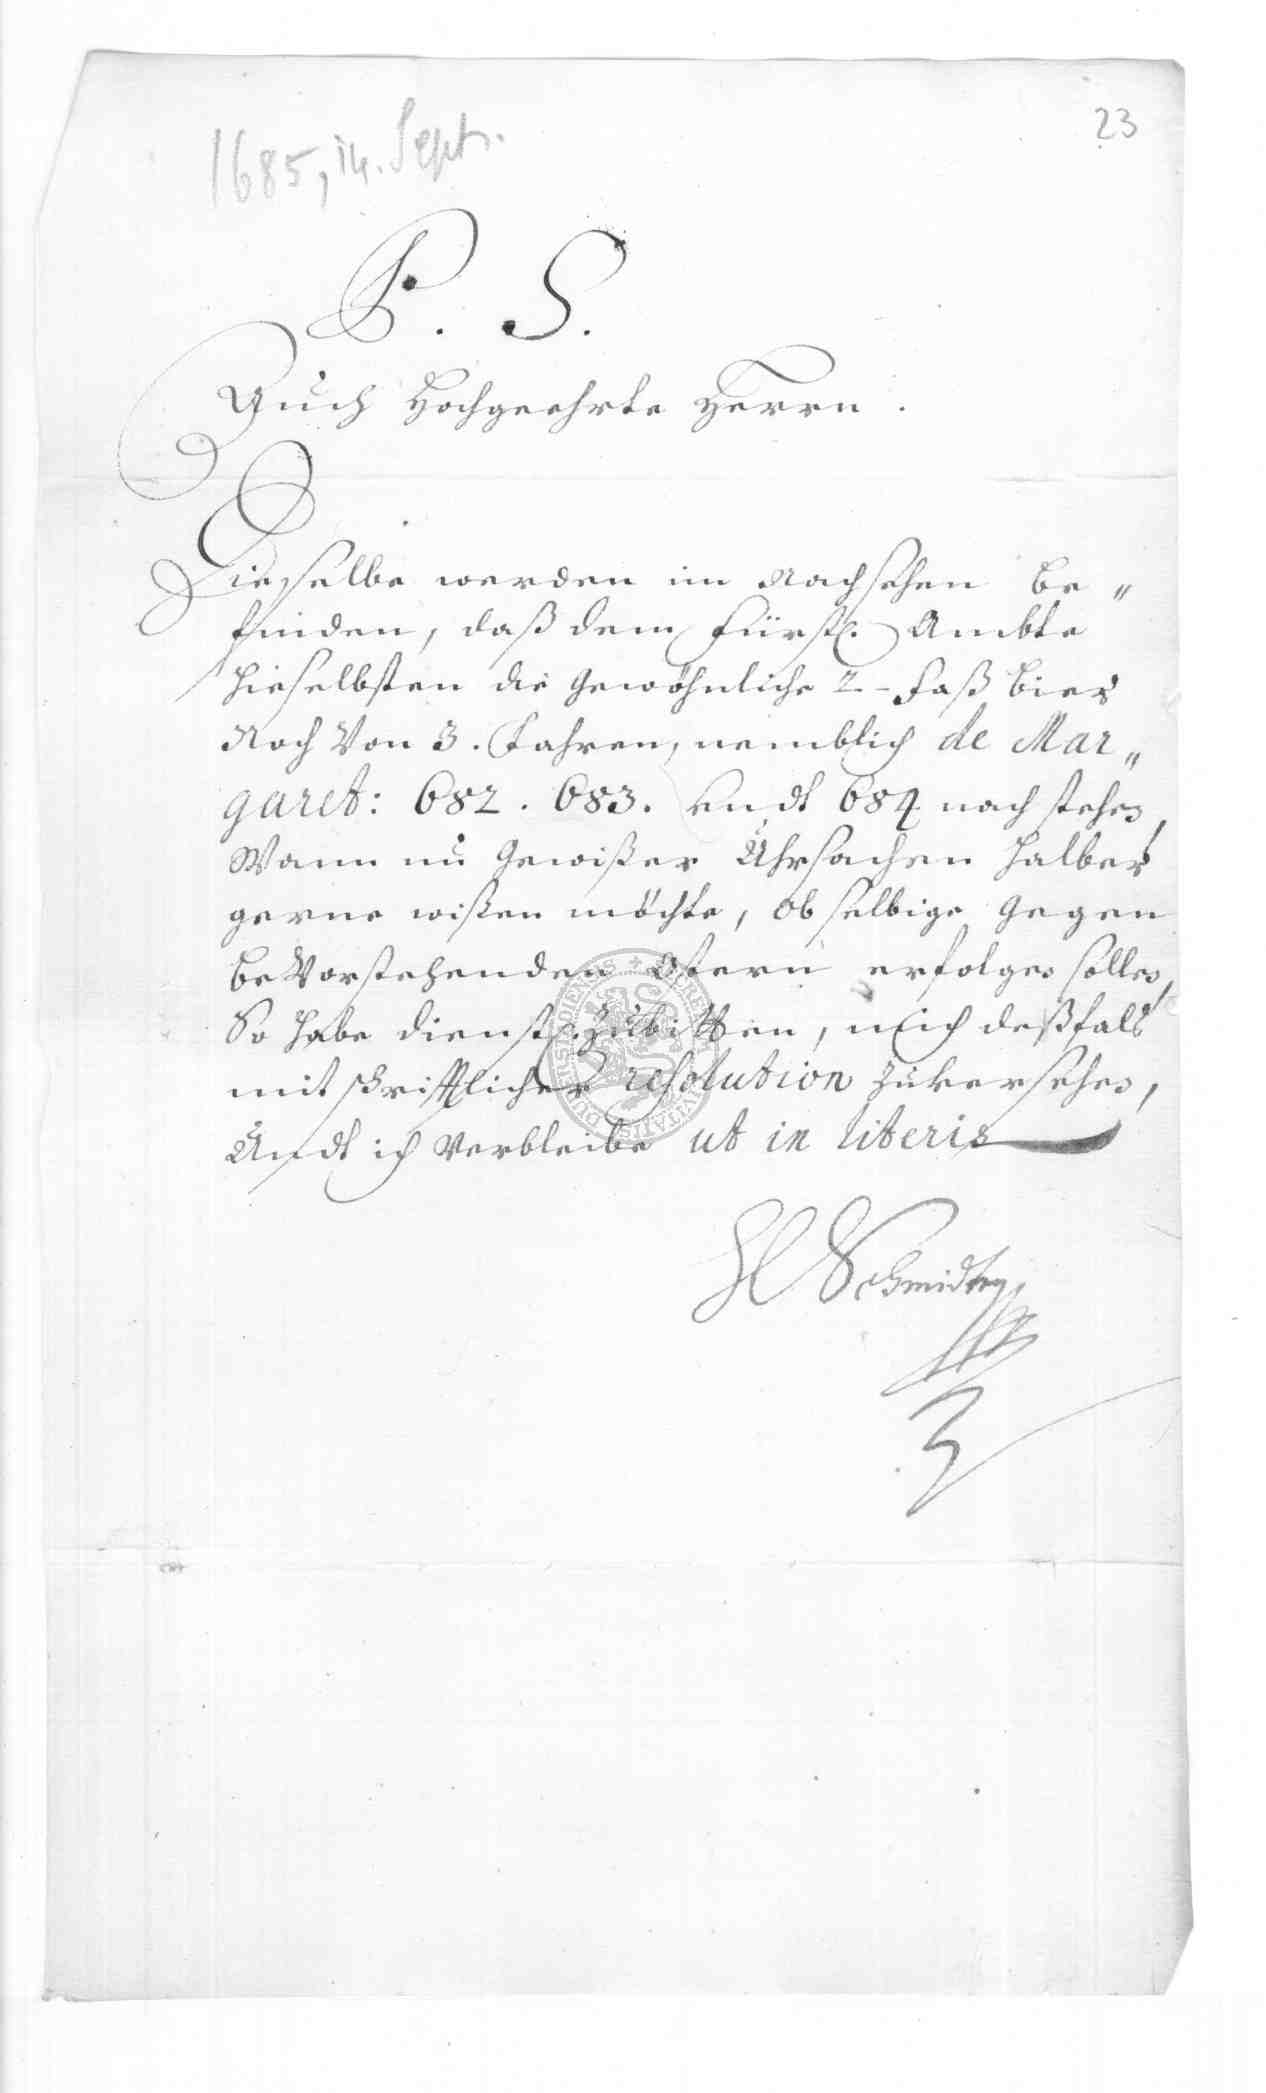 23
1685, 14. Sept.
P. S.
Auch Hochgeehrte Herrn.
Dieselbe werden im Nachsehen be„
finden, daß dem Fürstl. Ambte
hieselbsten die gewöhnliche 2 - Faß Bier
Noch Von 3. Jahren, nemblich de Mar„
garet: 682. 683. undt 684 nach stehen,
Wann nu gewißer Uhrsachen halber
gerne wißen möchte, ob selbige gegen
beVorstehenden Ostern erfolgen sollen,
So habe dienstl. zubitten, mich deßfals
mit schrifftlicher resolution zuversehen,
Undt ich Verbleibe ut in literis
Schmidt